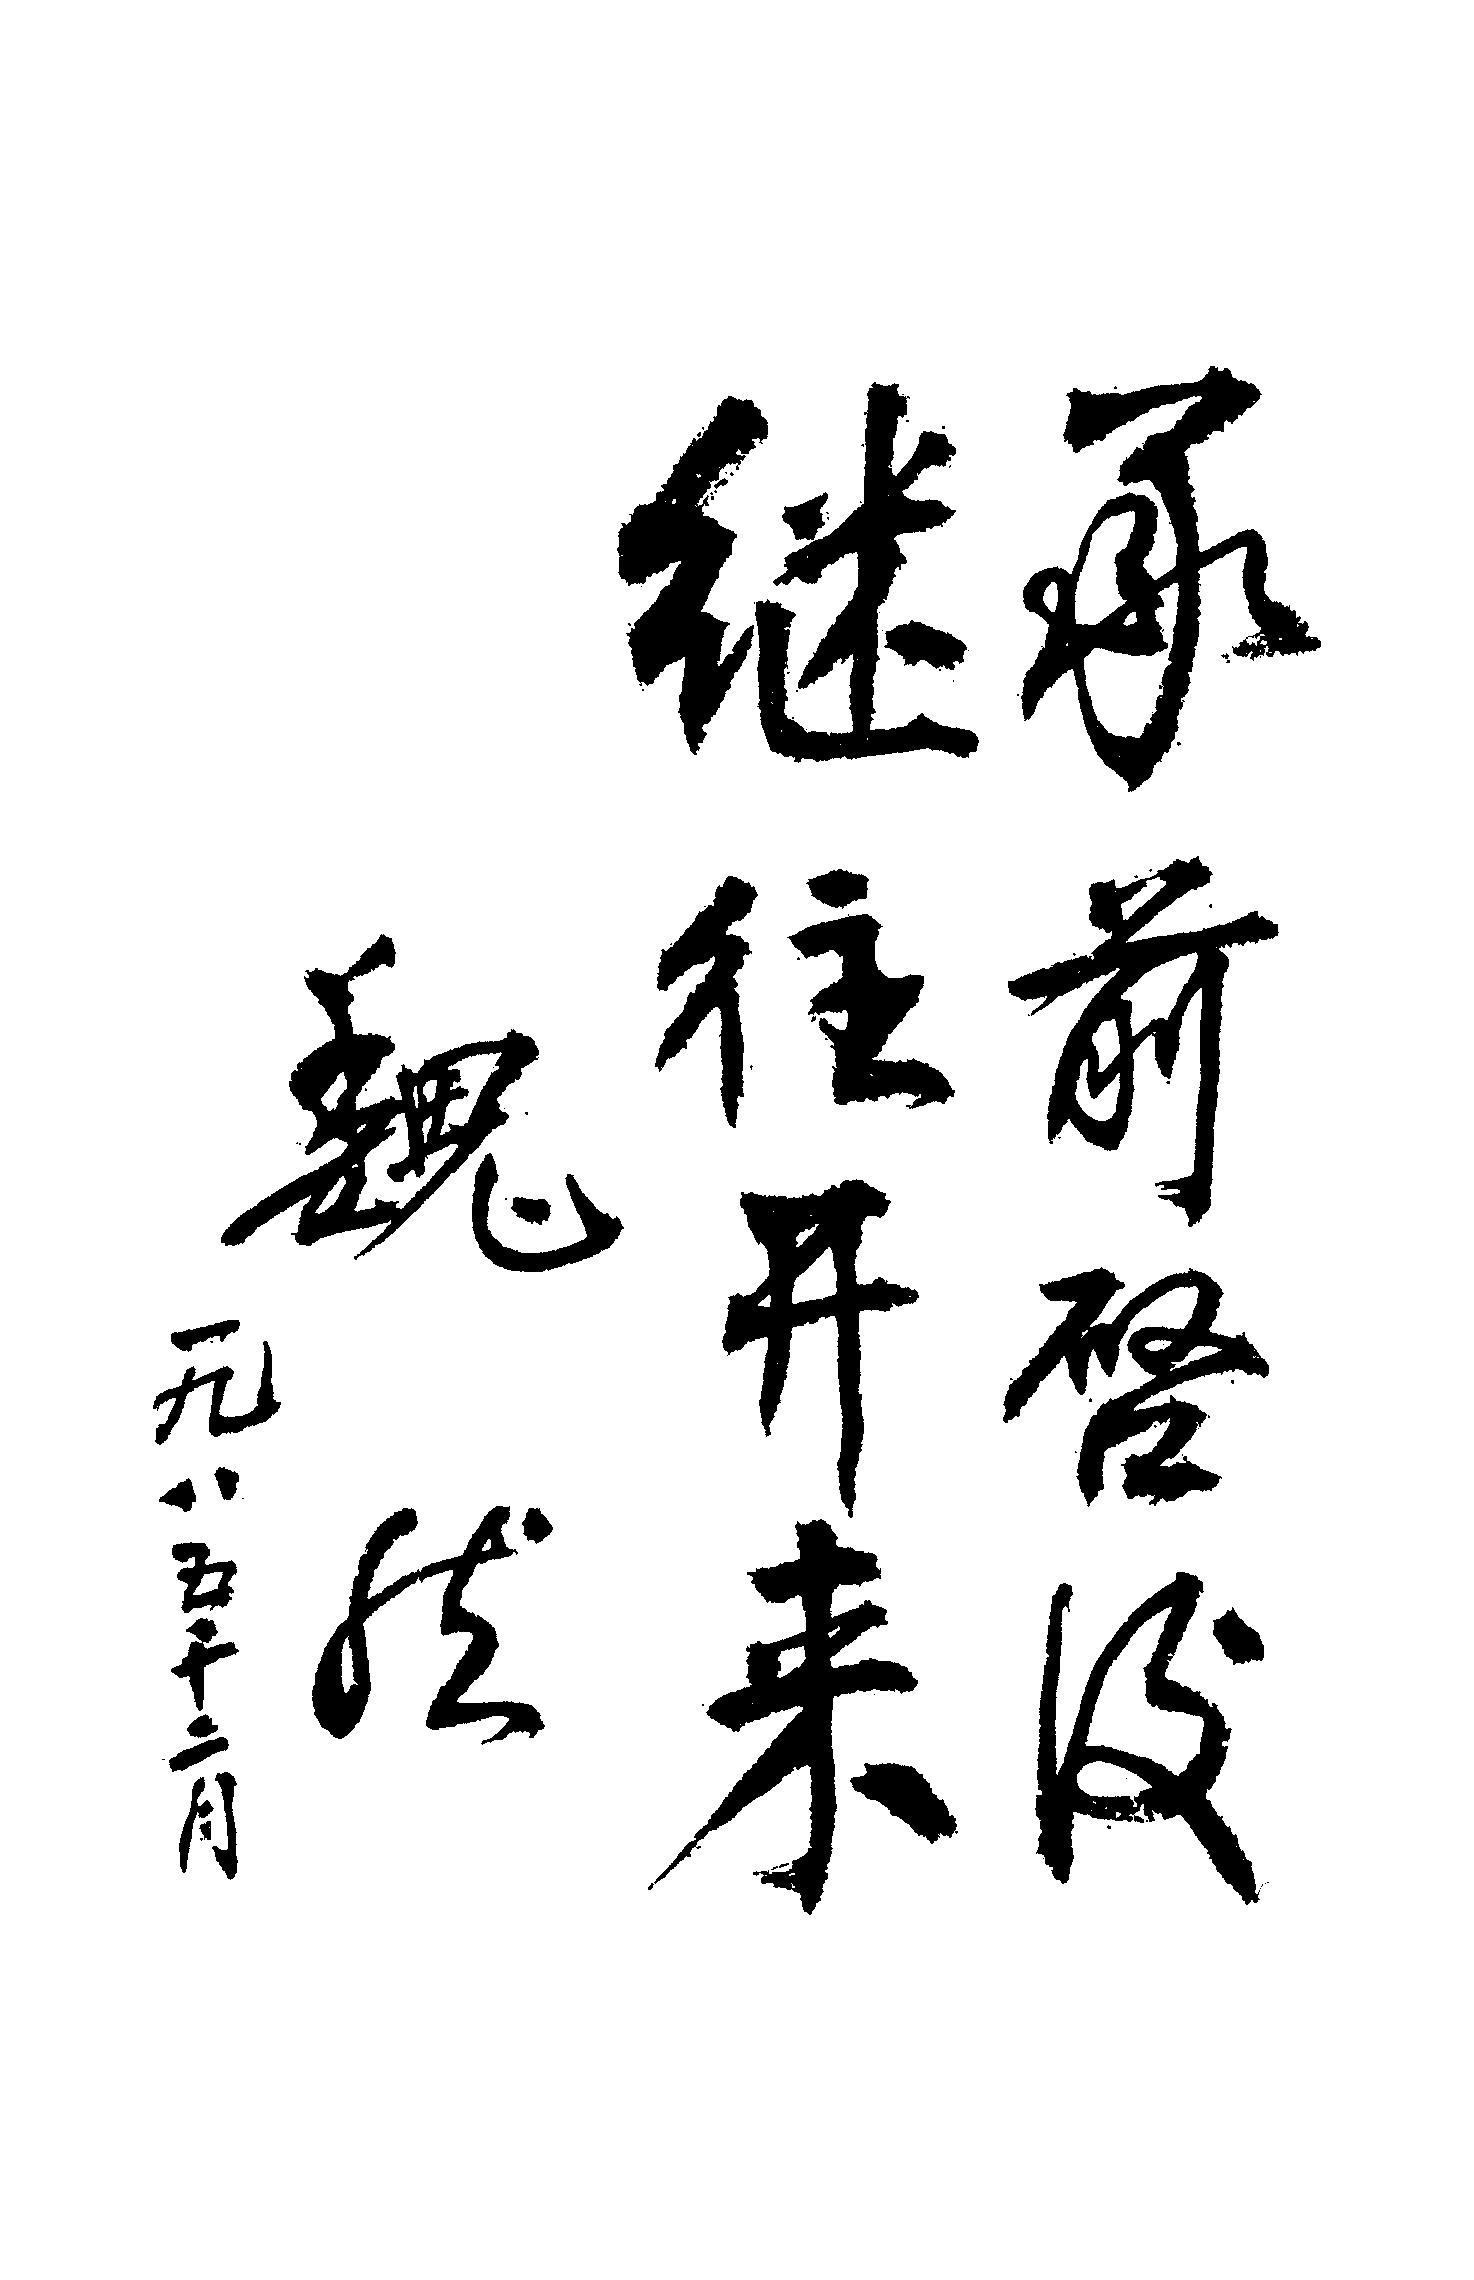 承前启后
继往开来
魏然
一九八五十二月